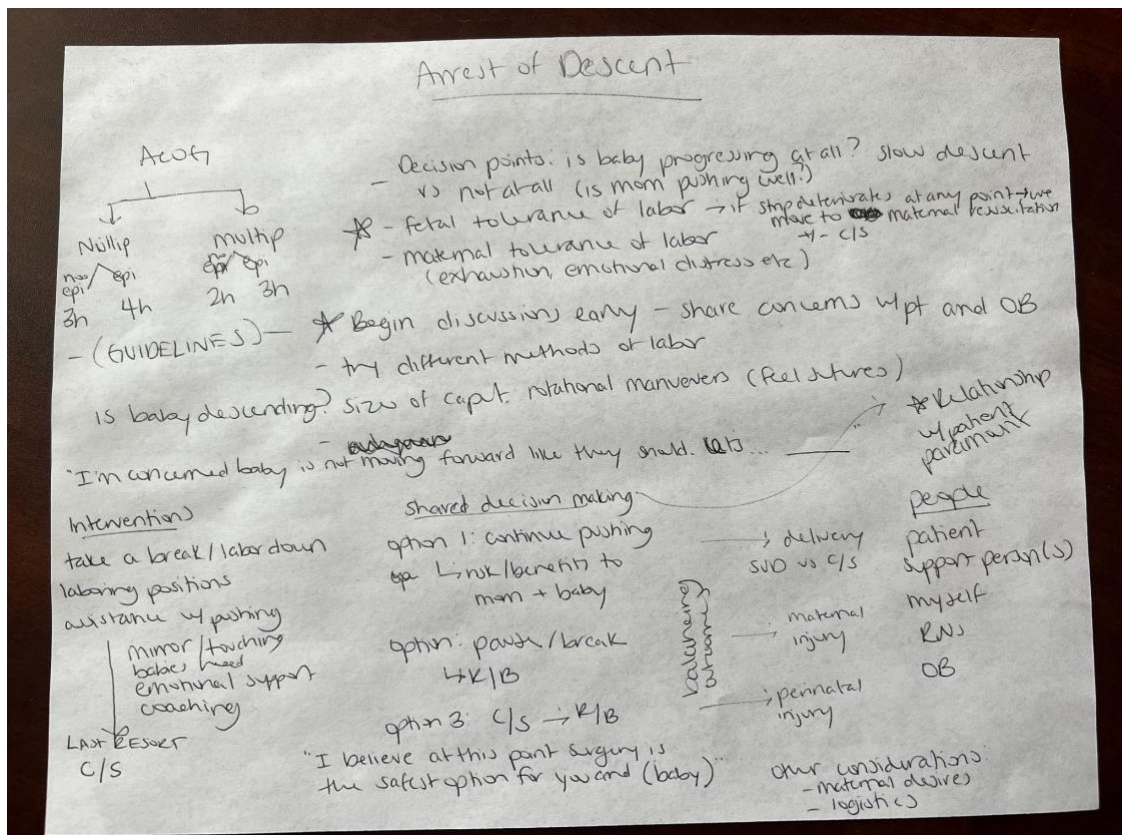 Arrest of Descent
ACOG
Nullip
multip
no epi
epi
no epi
epi
3h
4h
2h
3h
- (GUIDELINES) -
- Decision points: is baby progressing at all? slow descent
vs not at all (is mom pushing well?)
☆ - fetal tolerance of labor → if strip deteriorates at any point → we
move to maternal resuscitation
+/- C/S
- maternal tolerance of labor
(exhaustion, emotional distress etc)
☆ Begin discussions early - share concerns w/ pt and OB
- try different methods of labor
is baby descending? size of caput. rotational manuevers (feel sutures)
-
"I'm concerned baby is not moving forward like they should. let's... ____ "
☆ Relationship
w/ patient
paramount
Interventions
take a break / labor down
laboring positions
assistance w/ pushing
mirror / touching
babies head
emotional support
coaching
LAST RESORT
C/S
shared decision making
option 1: continue pushing
↳ risk/benefits to
mom + baby
option: pause / break
↳ R/B
option 3: C/S → R/B
"I believe at this point surgery is
the safest option for you and (baby)"
balancing
outcomes
→ delivery
SVD vs C/S
→ maternal
injury
→ perinatal
injury
people
patient
support person(s)
myself
RNs
OB
other considerations:
- maternal desires
- logistics